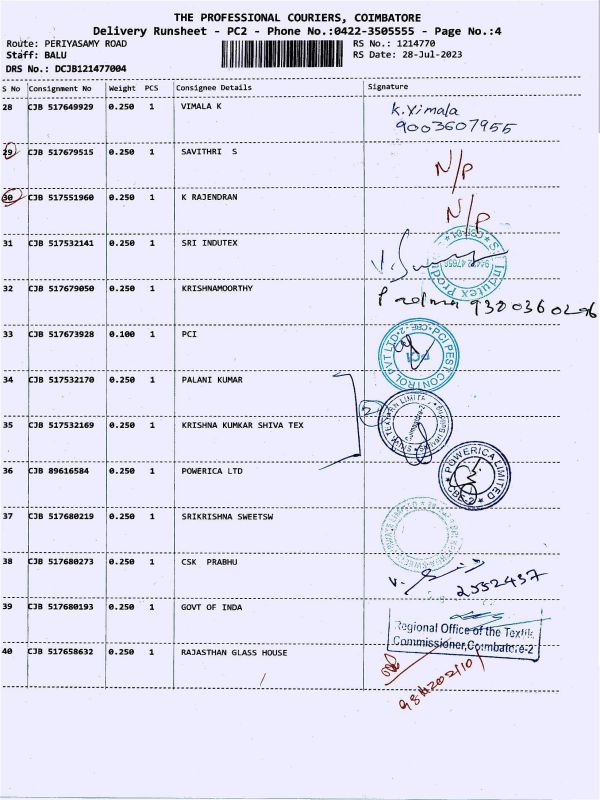 THE PROFESSIONAL COURIERS, COIMBATORE
Delivery Runsheet - PC2 - Phone No.:0422-3505555 - Page No.:4
Route: PERIYASAMY ROAD
RS No.: 1214770
Staff: BALU
RS Date: 28-Jul-2023
DRS No.: DCJB121477004
S No Consignment No Weight PCS Consignee Details Signature
28 CJB 517649929 0.250 1 VIMALA K K.Vimala
9003607955
29 CJB 517679515 0.250 1 SAVITHRI S N/P
30 CJB 517551960 0.250 1 K RAJENDRAN N/P
31 CJB 517532141 0.250 1 SRI INDUTEX
32 CJB 517679050 0.250 1 KRISHNAMOORTHY
33 CJB 517673928 0.100 1 PCI PCI PEST CONTROL PVT LTD CBE-2
PCI
34 CJB 517532170 0.250 1 PALANI KUMAR
2
35 CJB 517532169 0.250 1 KRISHNA KUMKAR SHIVA TEX
36 CJB 89616584 0.250 1 POWERICA LTD POWERICA LIMITED CBE-2
37 CJB 517680219 0.250 1 SRIKRISHNA SWEETSW
38 CJB 517680273 0.250 1 CSK PRABHU
2552437
39 CJB 517680193 0.250 1 GOVT OF INDA
Regional Office of the Textile
Commissioner,Coimbatore-2
40 CJB 517658632 0.250 1 RAJASTHAN GLASS HOUSE